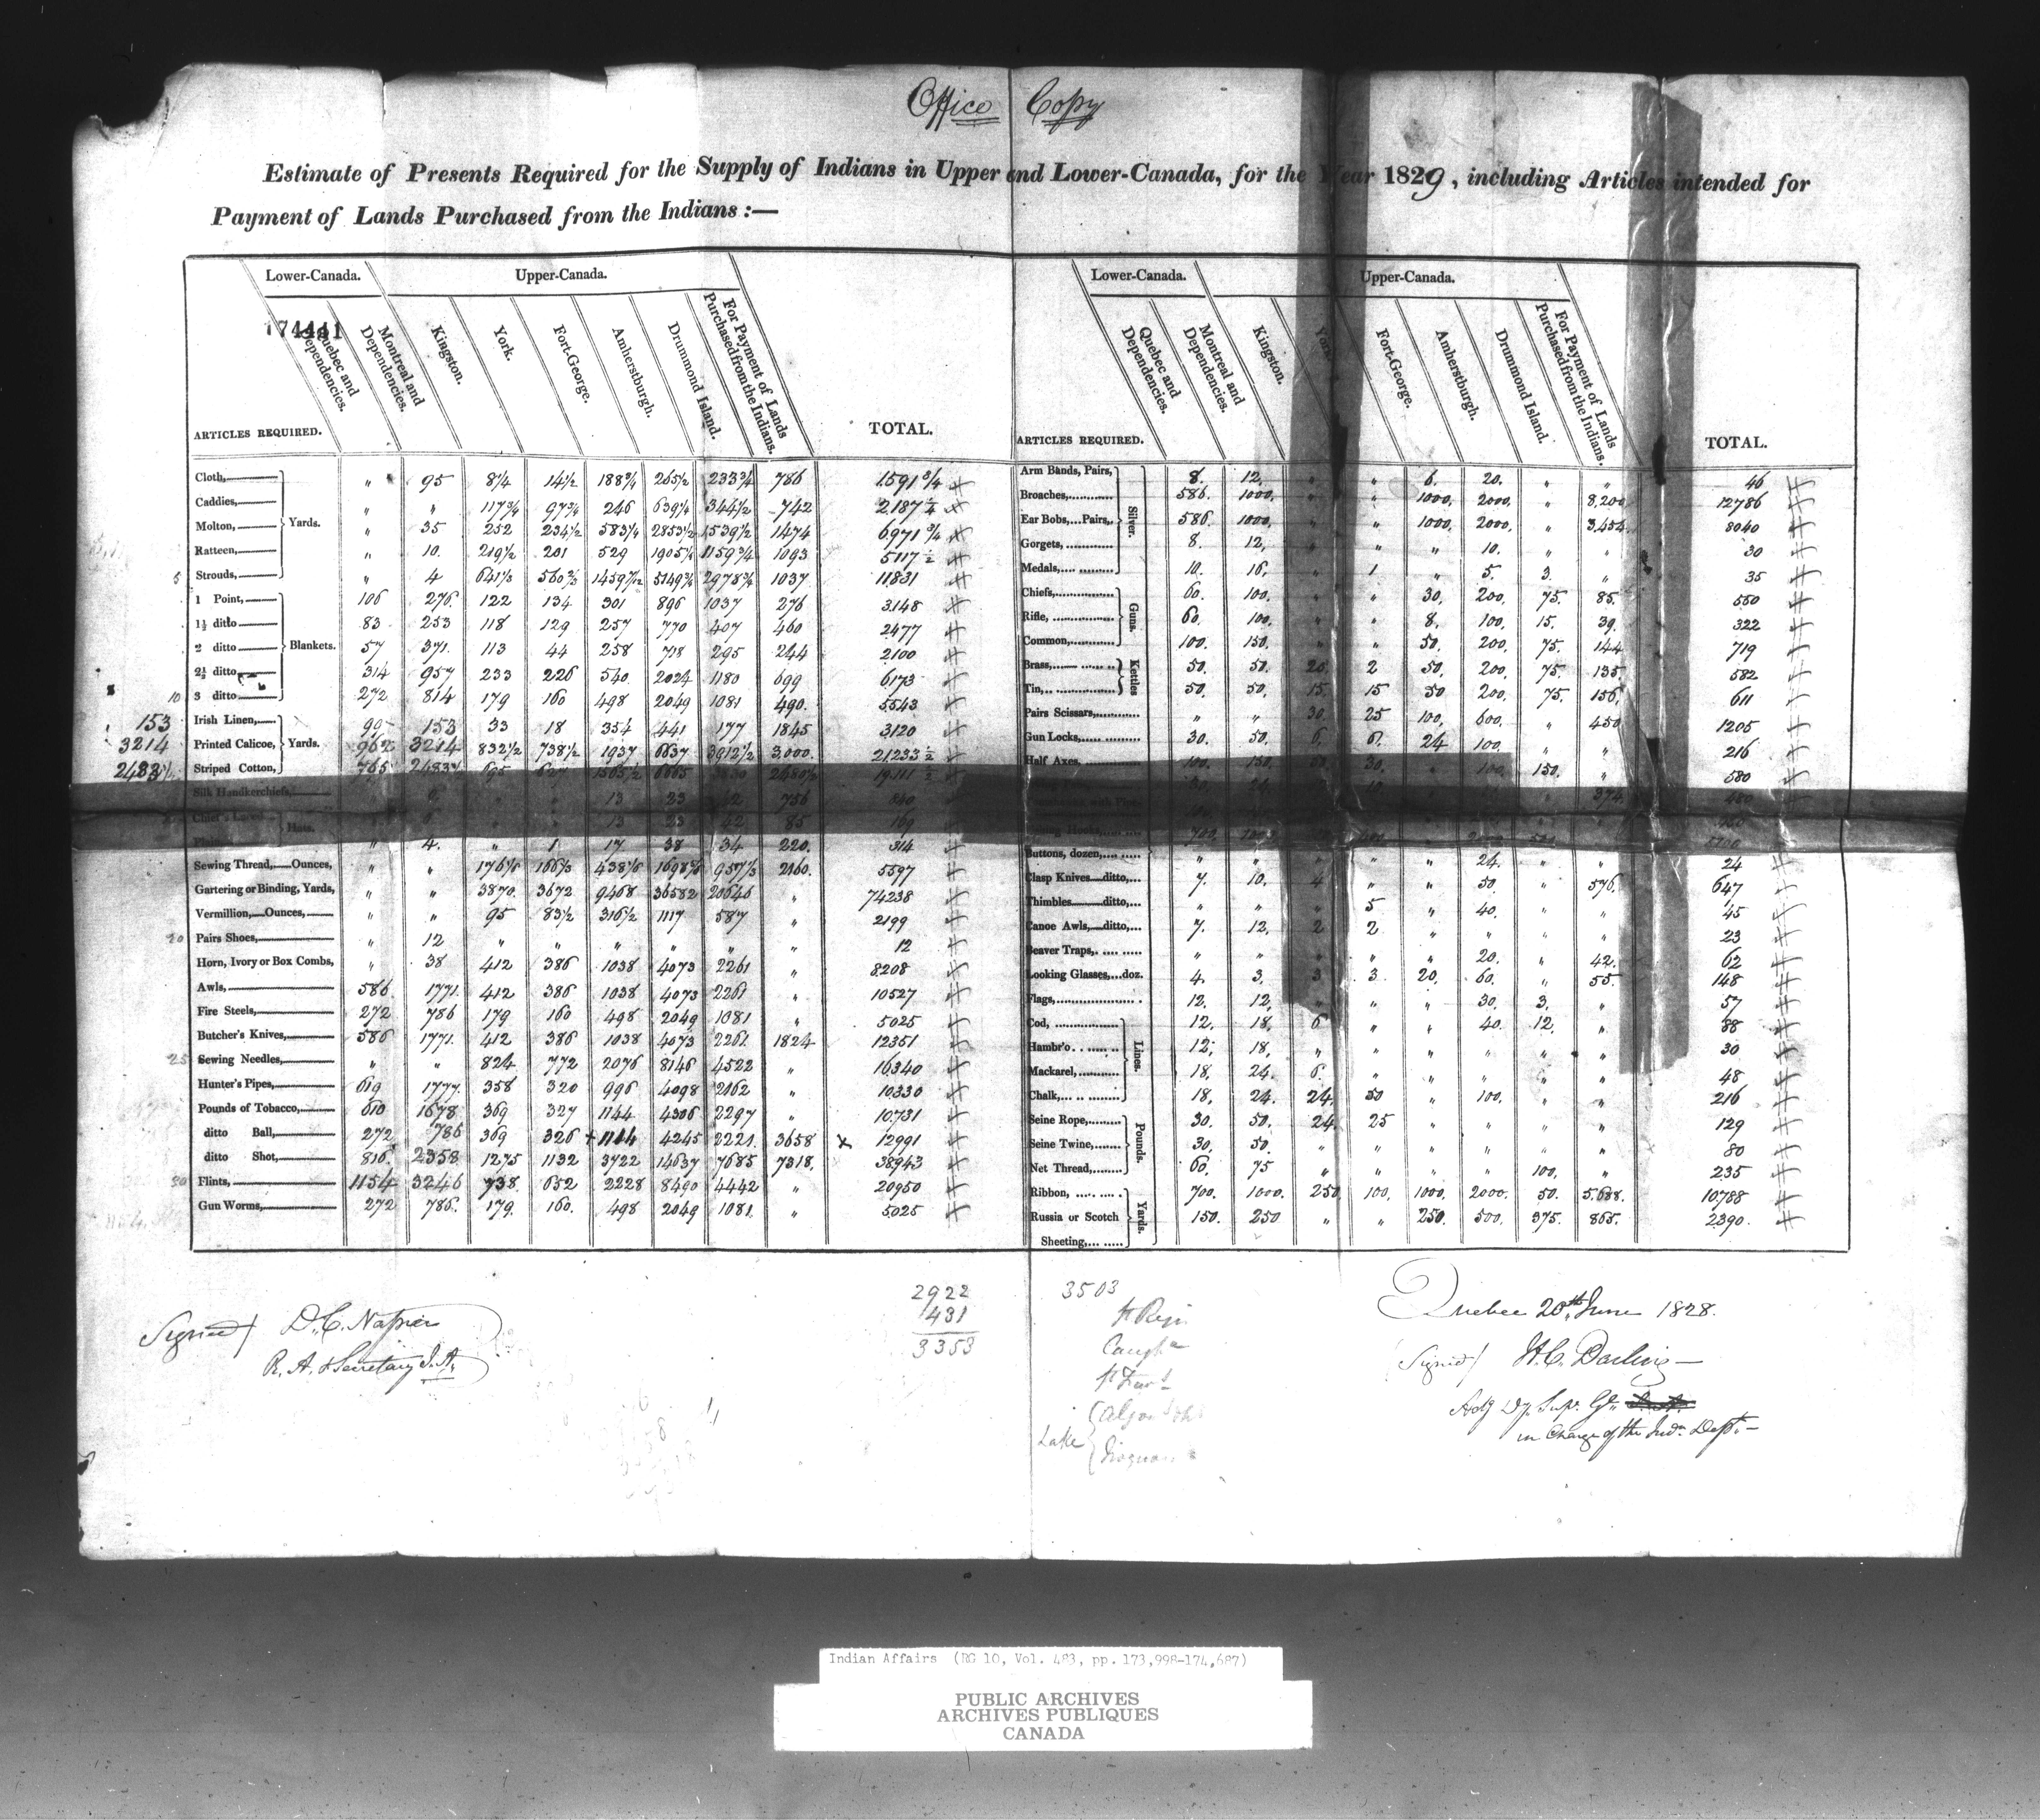 Office Copy
Estimate of Presents Required for the Supply of Indians in Upper and Lower-Canada, for the Year 1829, including Articles intended for
Payment of Lands Purchased from the Indians :—
174441
Lower-Canada. Upper-Canada.
ARTICLES REQUIRED. Quebec and Dependencies. Montreal and Dependencies. Kingston. York. Fort-George. Amherstburgh. Drummond Island. For Payment of Lands Purchased from the Indians. TOTAL.
Cloth, Yards. " 95 8¼ 14½ 188¾ 265½ 233¾ 786 1591¾
Caddies, " " 117¾ 97¾ 246 639¼ 344½ 742 2187¼
Molton, " 35 252 234½ 583½ 2853½ 1539½ 1474 6971¾
Ratteen, " 10. 219½ 201 529 1905¼ 1159¾ 1093 5117½
5 Strouds, " 4 641⅓ 560⅔ 1459 5149¾ 2978¾ 1037 11831
1 Point, Blankets. 106 276. 122 134 301 896 1037 276 3148
1½ ditto 83 253 118 129 257 770 407 460 2477
2 ditto 57 371. 113 44 258 718 295 244 2100
2½ ditto 314 957 233 226 540. 2024 1180 699 6173
10 3 ditto 272 814 179 160 498 2049 1081 490. 5543
153 Irish Linen, Yards. 99 153 33 18 354 441 177 1845 3120
3214 Printed Calicoe, 962 3214 832½ 738½ 1937 6637 3912½ 3,000. 21233½
2483½ Striped Cotton, 765 2483½ 695 627 1565½ 6665 3830 2480½ 19111½
Silk Handkerchiefs, 2 13 23 42 756
Chief's Laced Hats. 13 23 42 85 169
" 4. " 1 17 38 34 220. 314
Sewing Thread, Ounces, " " 176⅙ 166⅓ 438⅙ 1698 957⅓ 2160. 5597
Gartering or Binding, Yards, " " 3870. 3672 9468 36582 20646 " 74238
Vermillion, Ounces, " " 95 83½ 316½ 1117 587 " 2199
20 Pairs Shoes, " 12 " " " " " " 12
Horn, Ivory or Box Combs, " 38 412 386 1038 4073 2261 " 8208
Awls, 586. 1771. 412 386 1038 4073 2261 " 10527
Fire Steels, 272 786 179 160 498 2049 1081 " 5025
Butcher's Knives, 586 1771. 412 386 1038 4073 2261. 1824 12351
25 Sewing Needles, " " 824 772 2076 8146 4522 " 16340
Hunter's Pipes, 619 1777. 358 320 996 4098 2162 " 10330
Pounds of Tobacco, 610 1678 369 327 1144 4306 2297 " 10731
ditto Ball, 272 786 369 326 + 1114 4245 2221. 3658 x 12991
ditto Shot, 816. 2358 1275 1132 3722 14637 7685 7318. 38943
30 Flints, 1154 3246 738. 652 2228 8490 4442 " 20950
Gun Worms, 272 786. 179. 160. 498 2049 1081. " 5025
Lower-Canada. Upper-Canada.
ARTICLES REQUIRED. Quebec and Dependencies. Montreal and Dependencies. Kingston. York. Fort-George. Amherstburgh. Drummond Island. For Payment of Lands Purchased from the Indians. TOTAL.
Arm Bands, Pairs, Silver. 8. 12. " " 6. 20. " " 46
Broaches, 586. 1000. " " 1000. 2000. " 8,200 12786
Ear Bobs, Pairs, 586. 1000. " " 1000. 2000. " 3.454 8040
Gorgets, 8. 12, " " " 10. " " 30
Medals, 10. 16. " 1 " 5. 3. " 35
Chiefs, Guns. 60. 100. " " 30. 200. 75. 85. 550
Rifle, 60. 100. " " 8. 100. 15. 39. 322
Common, 100. 150. " " 50. 200. 75. 144 719
Brass, Kettles 50. 50. 20. 2 50. 200. 75. 135 582
Tin, 50. 50. 15. 15 50 200. 75. 156 611
Pairs Scissars, " " 30. 25 100. 600. " 450 1205
Gun Locks, 30. 50. 6 6. 24 100. " " 216
Half Axes, 100. 150. 50. 30. " 100. 150. " 580
374
Hooks, 700. 1000
Buttons, dozen, " " " " " 24. " " 24
Clasp Knives ditto, 7. 10. 4 " " 50. " 576. 647
Thimbles ditto, " " " 5 " 40. " " 45
Canoe Awls, ditto, 7. 12. 2 2 " " " " 23
Beaver Traps, " " " " " 20. " 42. 62
Looking Glasses, doz. 4. 3. 3 3. 20. 60. " 55. 148
Flags, 12. 12, " " " 30. 3. " 57
Cod, Lines. 12. 18. 6 " " 40. 12. " 88
Hambr'o 12. 18. " " " " " " 30
Mackarel, 18. 24. 6. " " " " " 48
Chalk, 18. 24. 24. 50 " 100. " " 216
Seine Rope, Pounds. 30. 50. 24. 25 " " " " 129
Seine Twine, 30. 50. " " " " " " 80
Net Thread, 60. 75 " " " " 100. " 235
Ribbon, Yards. 700. 1000. 250. 100. 1000. 2000. 50. 5.688. 10.788
Russia or Scotch Sheeting, 150. 250 " " 250. 500. 375. 865. 2390.
2922
431
3353
3503
St Regis
Lake
Signed/ D. C. Napier
R. A. & Secretary I. A.
Quebec 20th June 1828.
(Signed/ H. C. Darling—
in Charge of the Indn. Dept.—
Indian Affairs (RG 10, Vol. 483, pp. 173,998-174,687)
PUBLIC ARCHIVES
ARCHIVES PUBLIQUES
CANADA